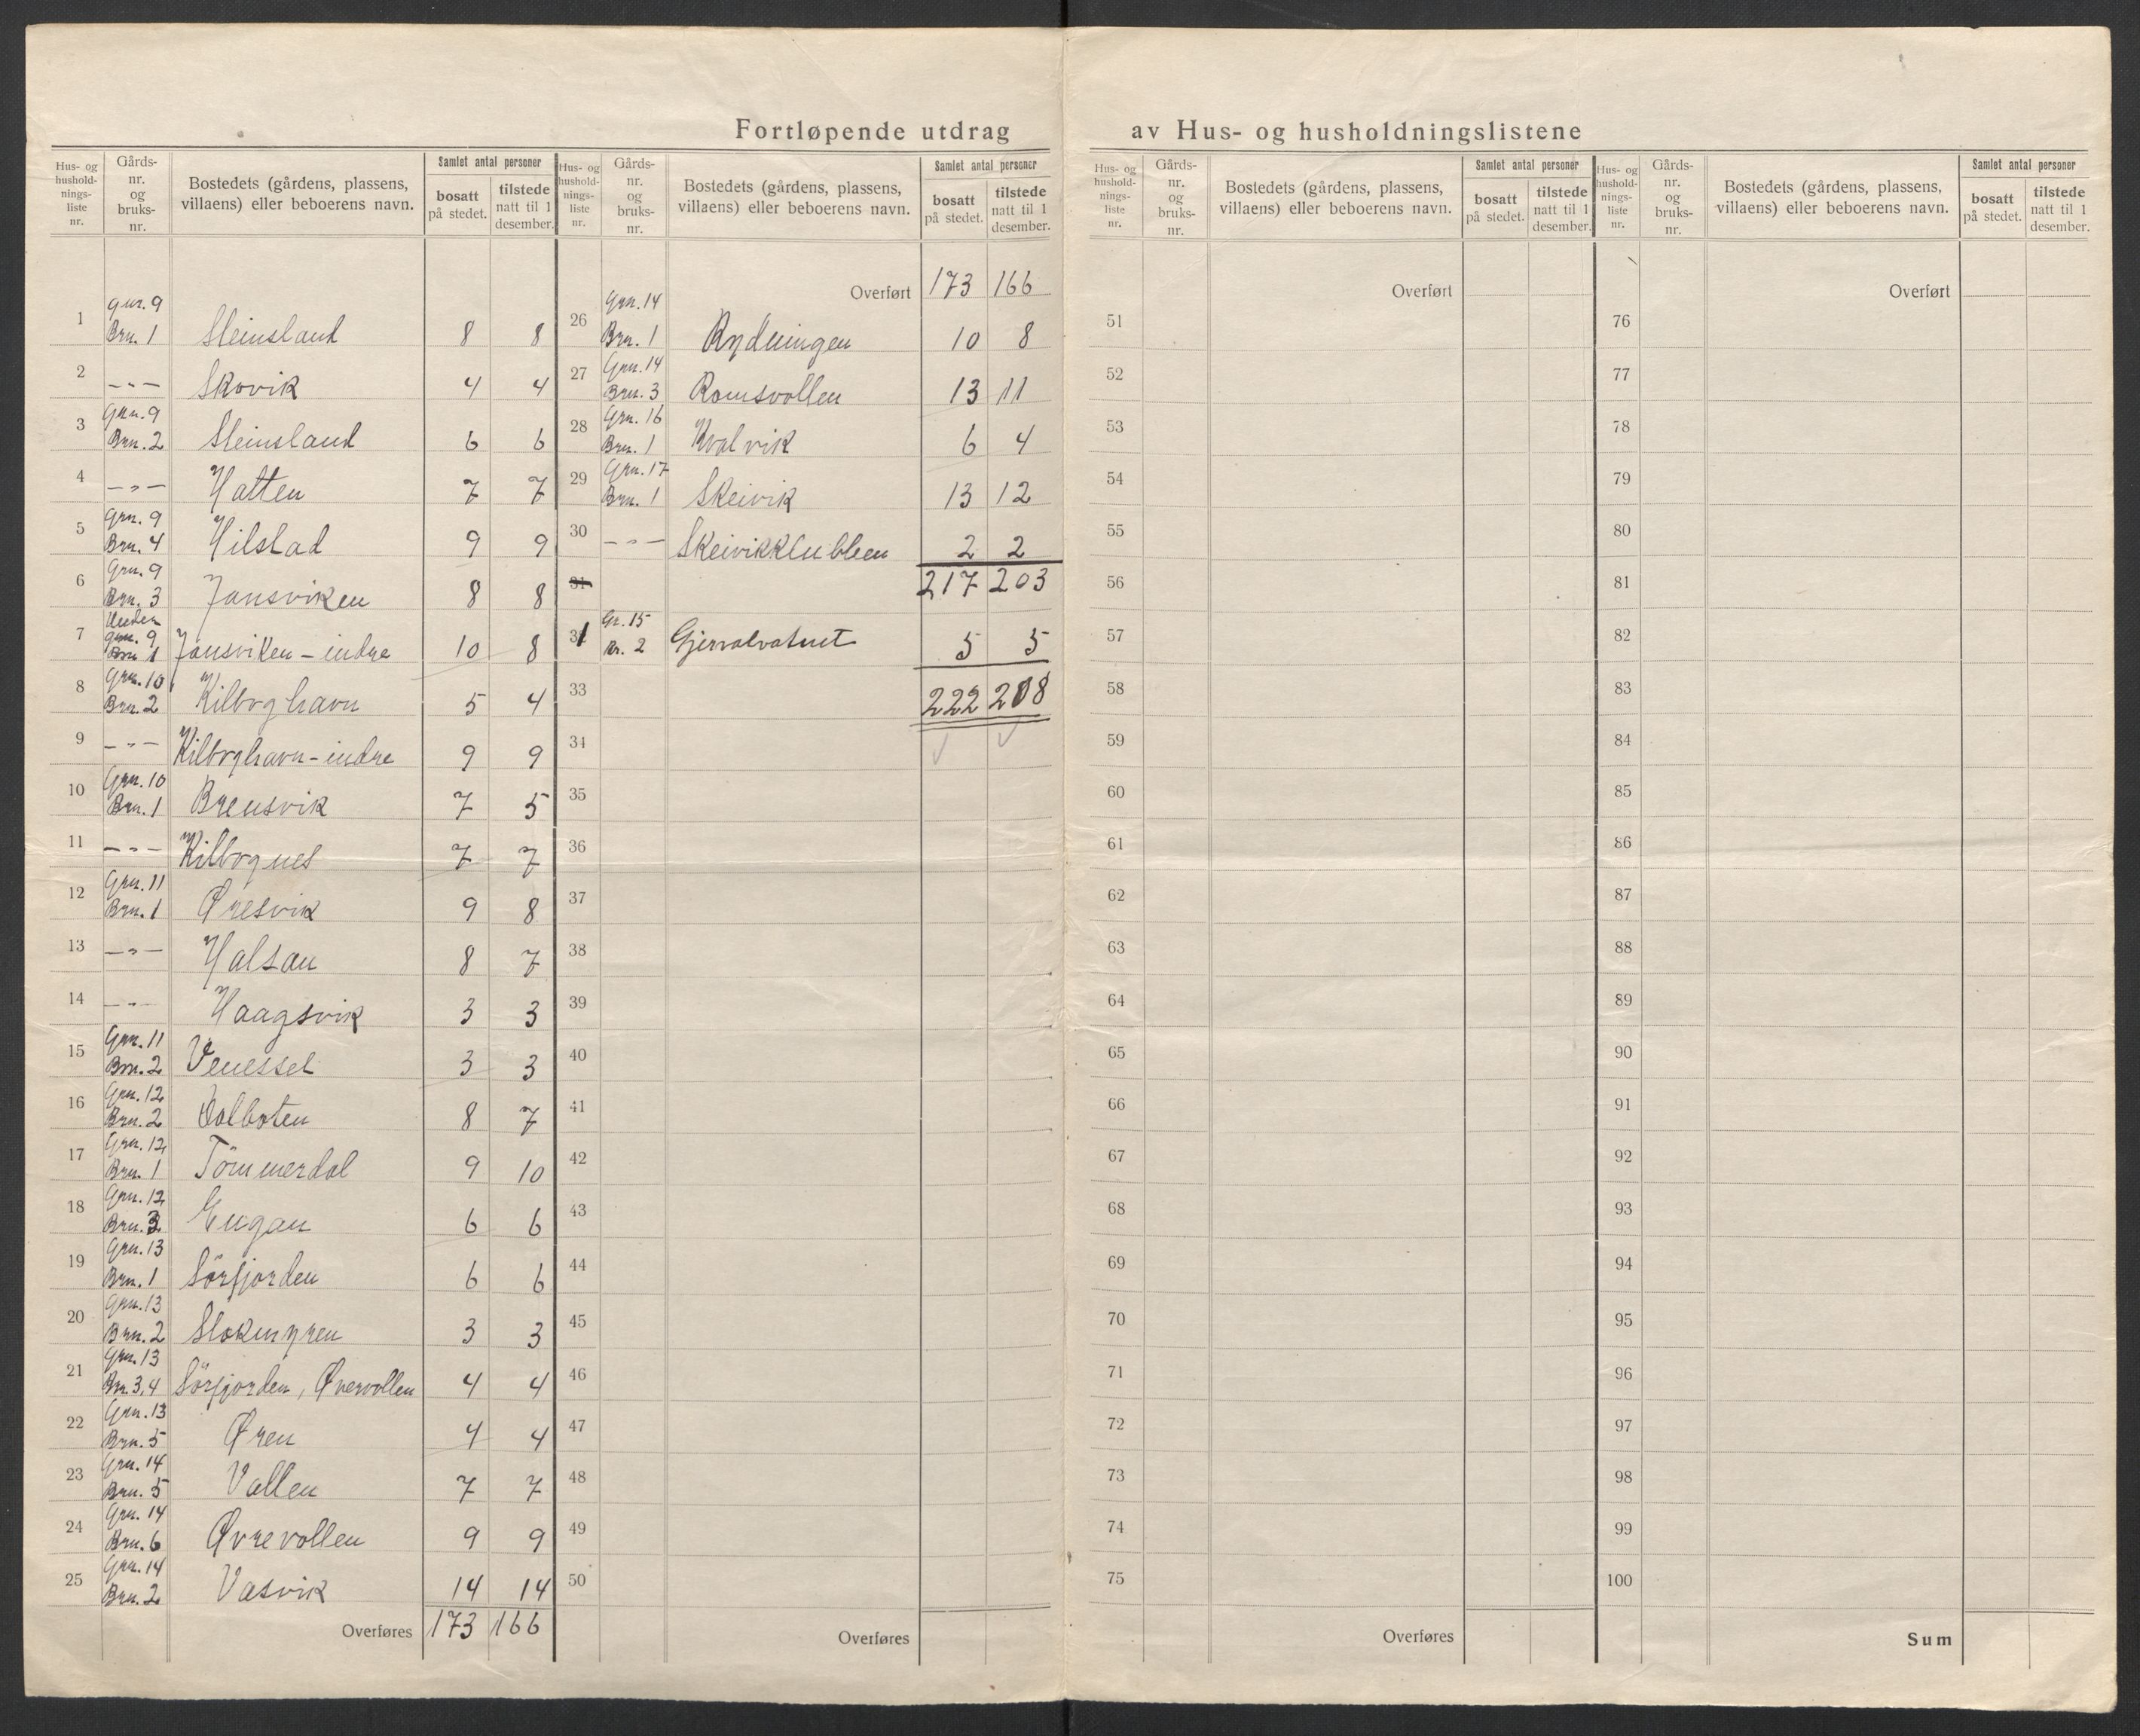 Fortløpende utdrag av Hus- og husholdningslistene
Hus- og hushold-nings-liste nr. | Gårds-nr. og bruks-nr. | Bostedets (gårdens, plassens, villaens) eller beboerens navn. | Samlet antal personer bosatt på stedet. | tilstede natt til 1 desember.
1 Gnr. 9 Brn. 1 Steinsland 8 8
2 -"- Skovik 4 4
3 Grn. 9 Brn. 2 Steinsland 6 6
4 -"- Hatten 7 7
5 Grn. 9 Brn. 4 Hilstad 9 9
6 Grn. 9 Brn. 3 Jansviken 8 8
7 Under grn. 9 Brn 1 Jansviken - indre 10 8
8 Grn. 10 Brn. 2 Kilboghavn 5 4
9 -"- Kilboghavn - indre 9 9
10 Grn. 10 Brn. 1 Brensvik 7 5
11 -"- Kilbognes 7 7
12 Grn. 11 Brn. 1 Øresvik 9 8
13 -"- Halsan 8 7
14 -"- Haagsvik 3 3
15 Grn. 11 Brn. 2 Venesset 3 3
16 Grn. 12 Brn. 2 Dalboten 8 7
17 Grn. 12 Brn. 1 Tömmerdal 9 10
18 Grn. 12 Brn. 3 Engan 6 6
19 Grn. 13 Brn. 1 Sörfjorden 6 6
20 Grn. 13 Brn. 2 Stokmyren 3 3
21 Grn. 13 Brn. 3,4 Sörfjorden, Øvervollen 4 4
22 Grn. 13 Brn. 5 Øren 4 4
23 Grn. 14 Brn. 5 Vollen 7 7
24 Grn. 14 Brn. 6 Øvrevollen 9 9
25 Grn. 14 Brn. 2 Vasvik 14 14
Overføres 173 166
Hus- og hushold-nings-liste nr. | Gårds-nr. og bruks-nr. | Bostedets (gårdens, plassens, villaens) eller beboerens navn. | Samlet antal personer bosatt på stedet. | tilstede natt til 1 desember.
Overført 173 166
26 Grn. 14 Brn. 1 Rydningen 10 8
27 Grn. 14 Brn. 3 Romsvollen 13 11
28 Grn. 16 Brn. 1 Kvalvik 6 4
29 Grn. 17 Brn. 1 Skeivik 13 12
30 -"- Skeivikklubben 2 2
31 217 203
31 Gr. 15 Br. 2 Gjervalvatnet 5 5
33 222 208
34
35
36
37
38
39
40
41
42
43
44
45
46
47
48
49
50
Overføres
Hus- og hushold-nings-liste nr. | Gårds-nr. og bruks-nr. | Bostedets (gårdens, plassens, villaens) eller beboerens navn. | Samlet antal personer bosatt på stedet. | tilstede natt til 1 desember.
Overført
51
52
53
54
55
56
57
58
59
60
61
62
63
64
65
66
67
68
69
70
71
72
73
74
75
Overføres
Hus- og hushold-nings-liste nr. | Gårds-nr. og bruks-nr. | Bostedets (gårdens, plassens, villaens) eller beboerens navn. | Samlet antal personer bosatt på stedet. | tilstede natt til 1 desember.
Overført
76
77
78
79
80
81
82
83
84
85
86
87
88
89
90
91
92
93
94
95
96
97
98
99
100
Sum